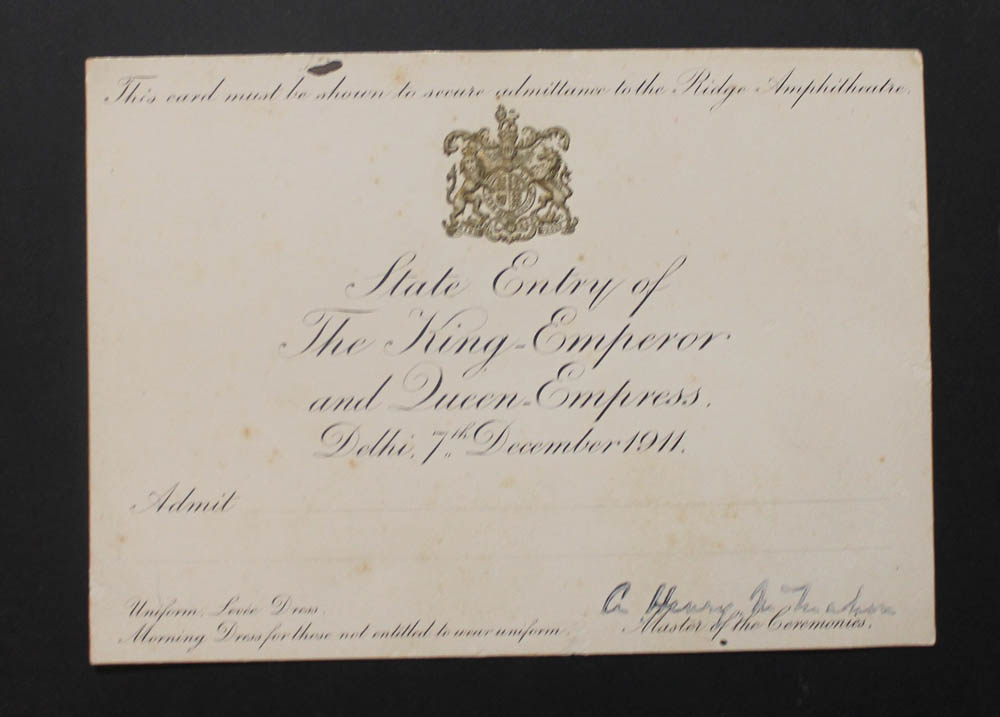 This card must be shown to secure admittance to the Ridge Amphitheatre.
State Entry of
The King-Emperor
and Queen-Empress.
Delhi, 7th December 1911.
Admit
Uniform, Levée Dress.
Morning Dress for those not entitled to wear uniform.
A Henry McMahon
Master of the Ceremonies.